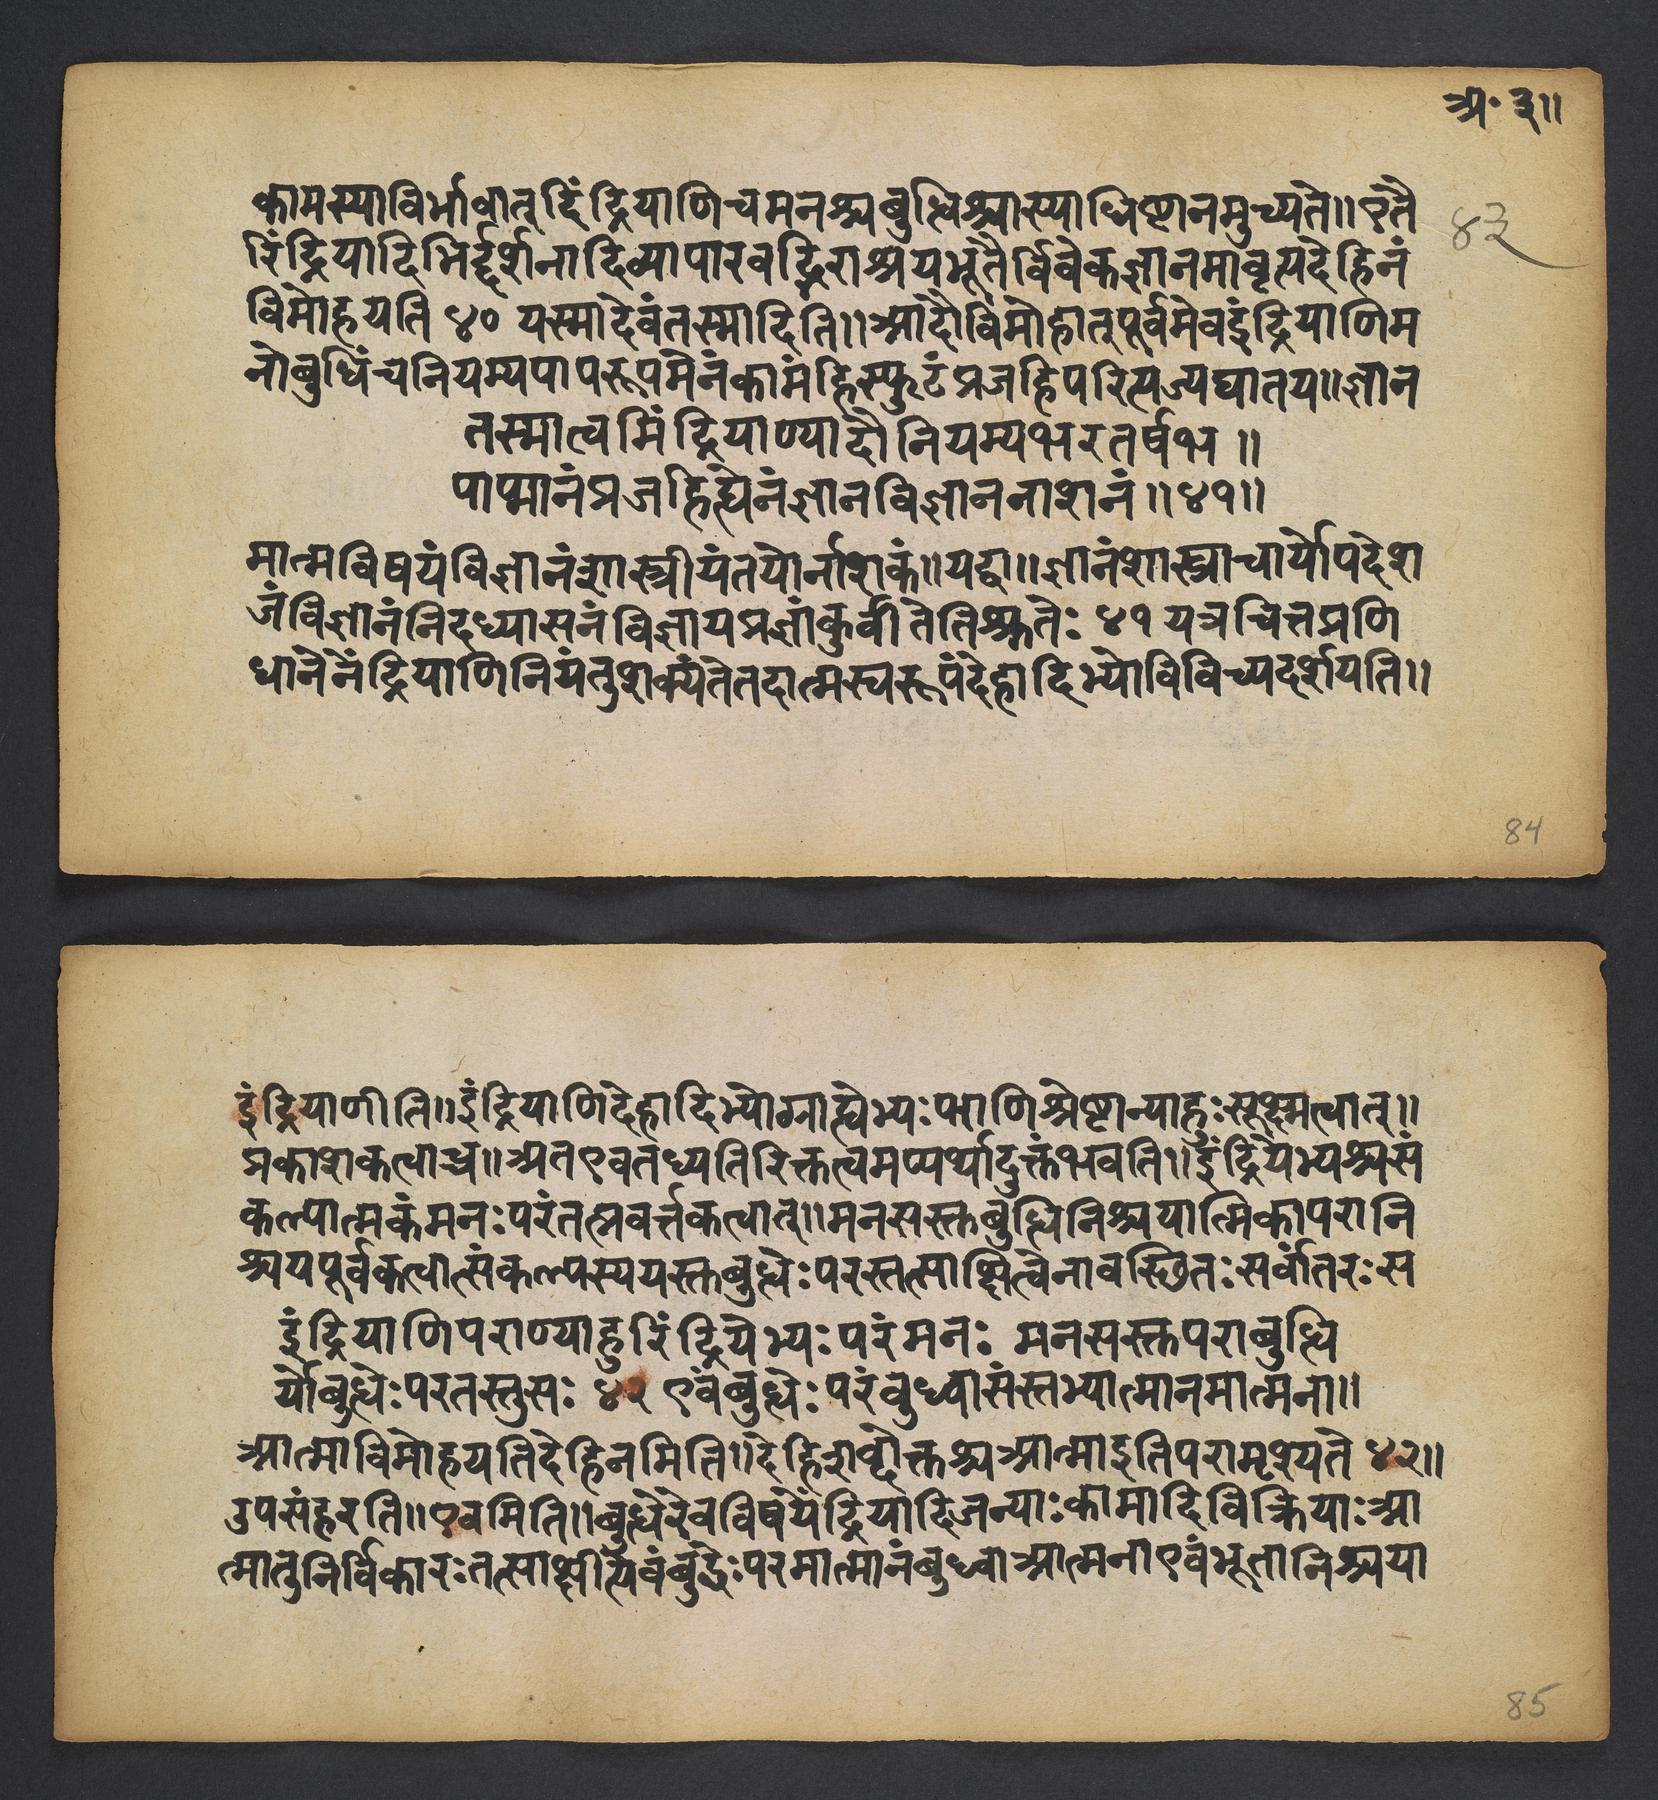 अ॰ ३॥
कामस्याविर्भावात् इिंद्रियाणिचमनश्चबुद्धिश्चास्याधिष्ठानमुच्यते॥एतै
४३
रिंद्रियादिभिर्द्दर्शनादिव्यापारवद्भिराश्रयभूतैर्विवेकज्ञानमावृत्यदेहिनं
विमोहयति ४० यस्मादेवंतस्मादिति॥आदौविमोहात्पूर्वमेवइंद्रियाणिम
नोबुधिंचनियम्यपापरूपमेनंकामंहिस्फुटंप्रजहिपरित्यज्यघातय॥ज्ञान
तस्मात्वमिंद्रियाण्यादौनियम्यभरतर्षभ॥
पाप्मानंप्रजहिह्येनंज्ञानविज्ञाननाशनं॥४१॥
मात्मविषयंविज्ञानंशास्त्रीयंतयोर्नाशकं॥यद्वा॥ज्ञानंशास्त्राचार्योपदेश
जंविज्ञानंनिदध्यासनंविज्ञायप्रज्ञांकुर्वीतेतिश्रुतेः ४१ यत्रचित्तप्रणि
धानेनेंद्रियाणिनियंतुशक्यंतेतदात्मस्वरूपंदेहादिभ्योविविच्यदर्शयति॥
84
इंद्रियाणीति॥इंद्रियाणिदेहादिभ्योग्राह्येभ्यःपराणिश्रेष्ठान्याहुःसूक्ष्मत्वात्॥
प्रकाशकत्वाच्च॥अतएवतध्यतिरिक्तत्वमप्यर्थादुक्तंभवति॥इंद्रियेभ्यश्चसं
कल्पात्मकंमनःपरंतत्प्रवर्त्तकत्वात्॥मनसस्तुबुद्धिनिश्चयात्मिकापरानि
श्चयपूर्वकत्वात्संकल्पस्ययस्तुबुद्धेःपरस्तत्साक्षित्वेनावस्थितःसर्वांतरःस
इंद्रियाणिपराण्याहुरिंद्रियेभ्यःपरंमनः मनसस्तुपराबुद्धि
र्योबुद्धेःपरतस्तुसः ४२ एवंबुद्धेःपरंबुध्वासंस्तभ्यात्मानमात्मना॥
आत्माविमोहयतिदेहिनमिति॥देहिशब्दोक्तश्चआत्माइतिपरामृश्यते ४२॥
उपसंहरति॥एवमिति॥बुद्धेरेवविषयेंद्रियादिजन्याःकामादिविक्रियाःआ
त्मातुनिर्विकारःतत्साक्षीत्येवंबुद्धेःपरमात्मानंबुध्वाआत्मनाएवंभूतानिश्चया
85